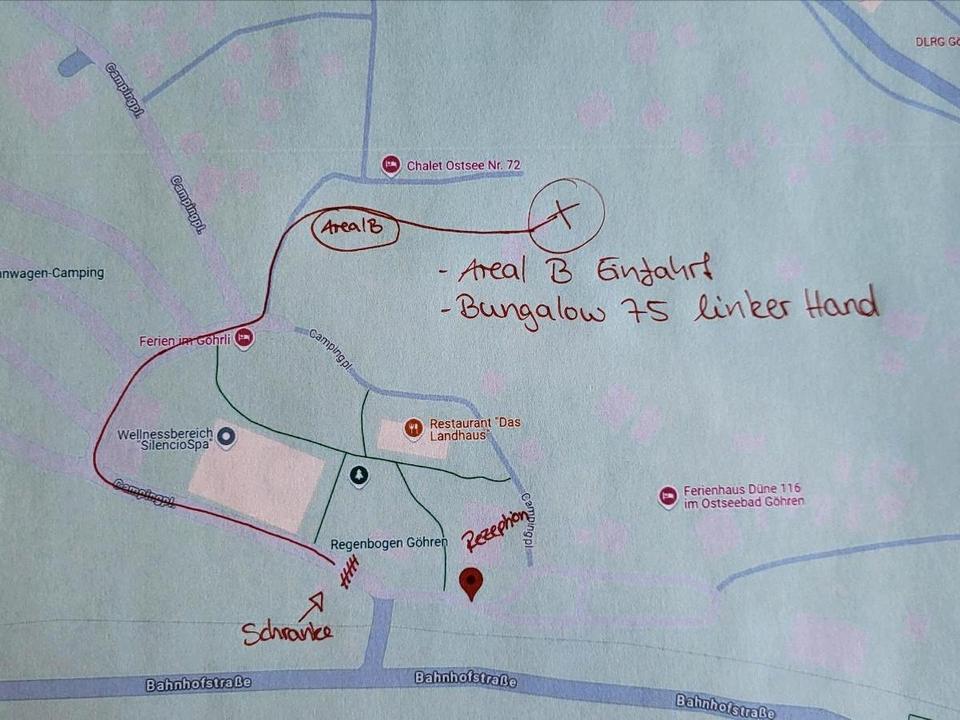 DLRG Gö
Campingpl.
Chalet Ostsee Nr. 72
Campingpl.
Areal B
nwagen-Camping
- Areal B Einfahrt
- Bungalow 75 linker Hand
Ferien im Göhrli
Campingpl.
Wellnessbereich
"SilencioSpa"
Restaurant "Das
Landhaus"
Campingpl.
Ferienhaus Düne 116
im Ostseebad Göhren
Campingpl.
Rezeption
Regenbogen Göhren
Schranke
Bahnhofstraße
Bahnhofstraße
Bahnhofstraße